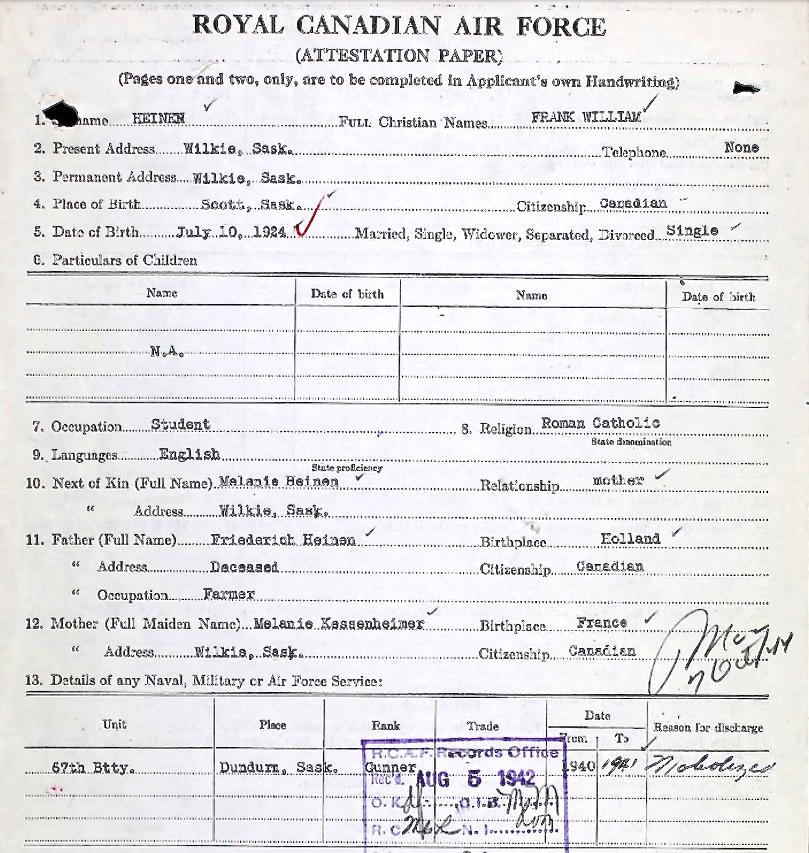 ROYAL CANADIAN AIR FORCE
(ATTESTATION PAPER)
(Pages one and two, only, are to be completed in Applicant's own Handwriting)
1. name HEINEN Full Christian Names FRANK WILLIAM
2. Present Address Wilkie, Sask. Telephone None
3. Permanent Address Wilkie, Sask.
4. Place of Birth Scott, Sask. Citizenship Canadian
5. Date of Birth July 10, 1924 Married, Single, Widower, Separated, Divorced Single
6. Particulars of Children
Name Date of birth Name Date of birth
N.A.
7. Occupation Student 8. Religion Roman Catholic
State denomination
9. Languages English
State proficiency
10. Next of Kin (Full Name) Melanie Heinen Relationship mother
" Address Wilkie, Sask.
11. Father (Full Name) Friederich Heinen Birthplace Holland
" Address Deceased Citizenship Canadian
" Occupation Farmer
12. Mother (Full Maiden Name) Melanie Kessenheimer Birthplace France
" Address Wilkie, Sask. Citizenship Canadian
13. Details of any Naval, Military or Air Force Service:
Unit Place Rank Trade Date Reason for discharge
From To
R.C.A.F. Records Office
67th Btty. Dundurn, Sask. Gunner 1940 1941
Rec'd. AUG 5 1942
O.K.
R.C. N.I.